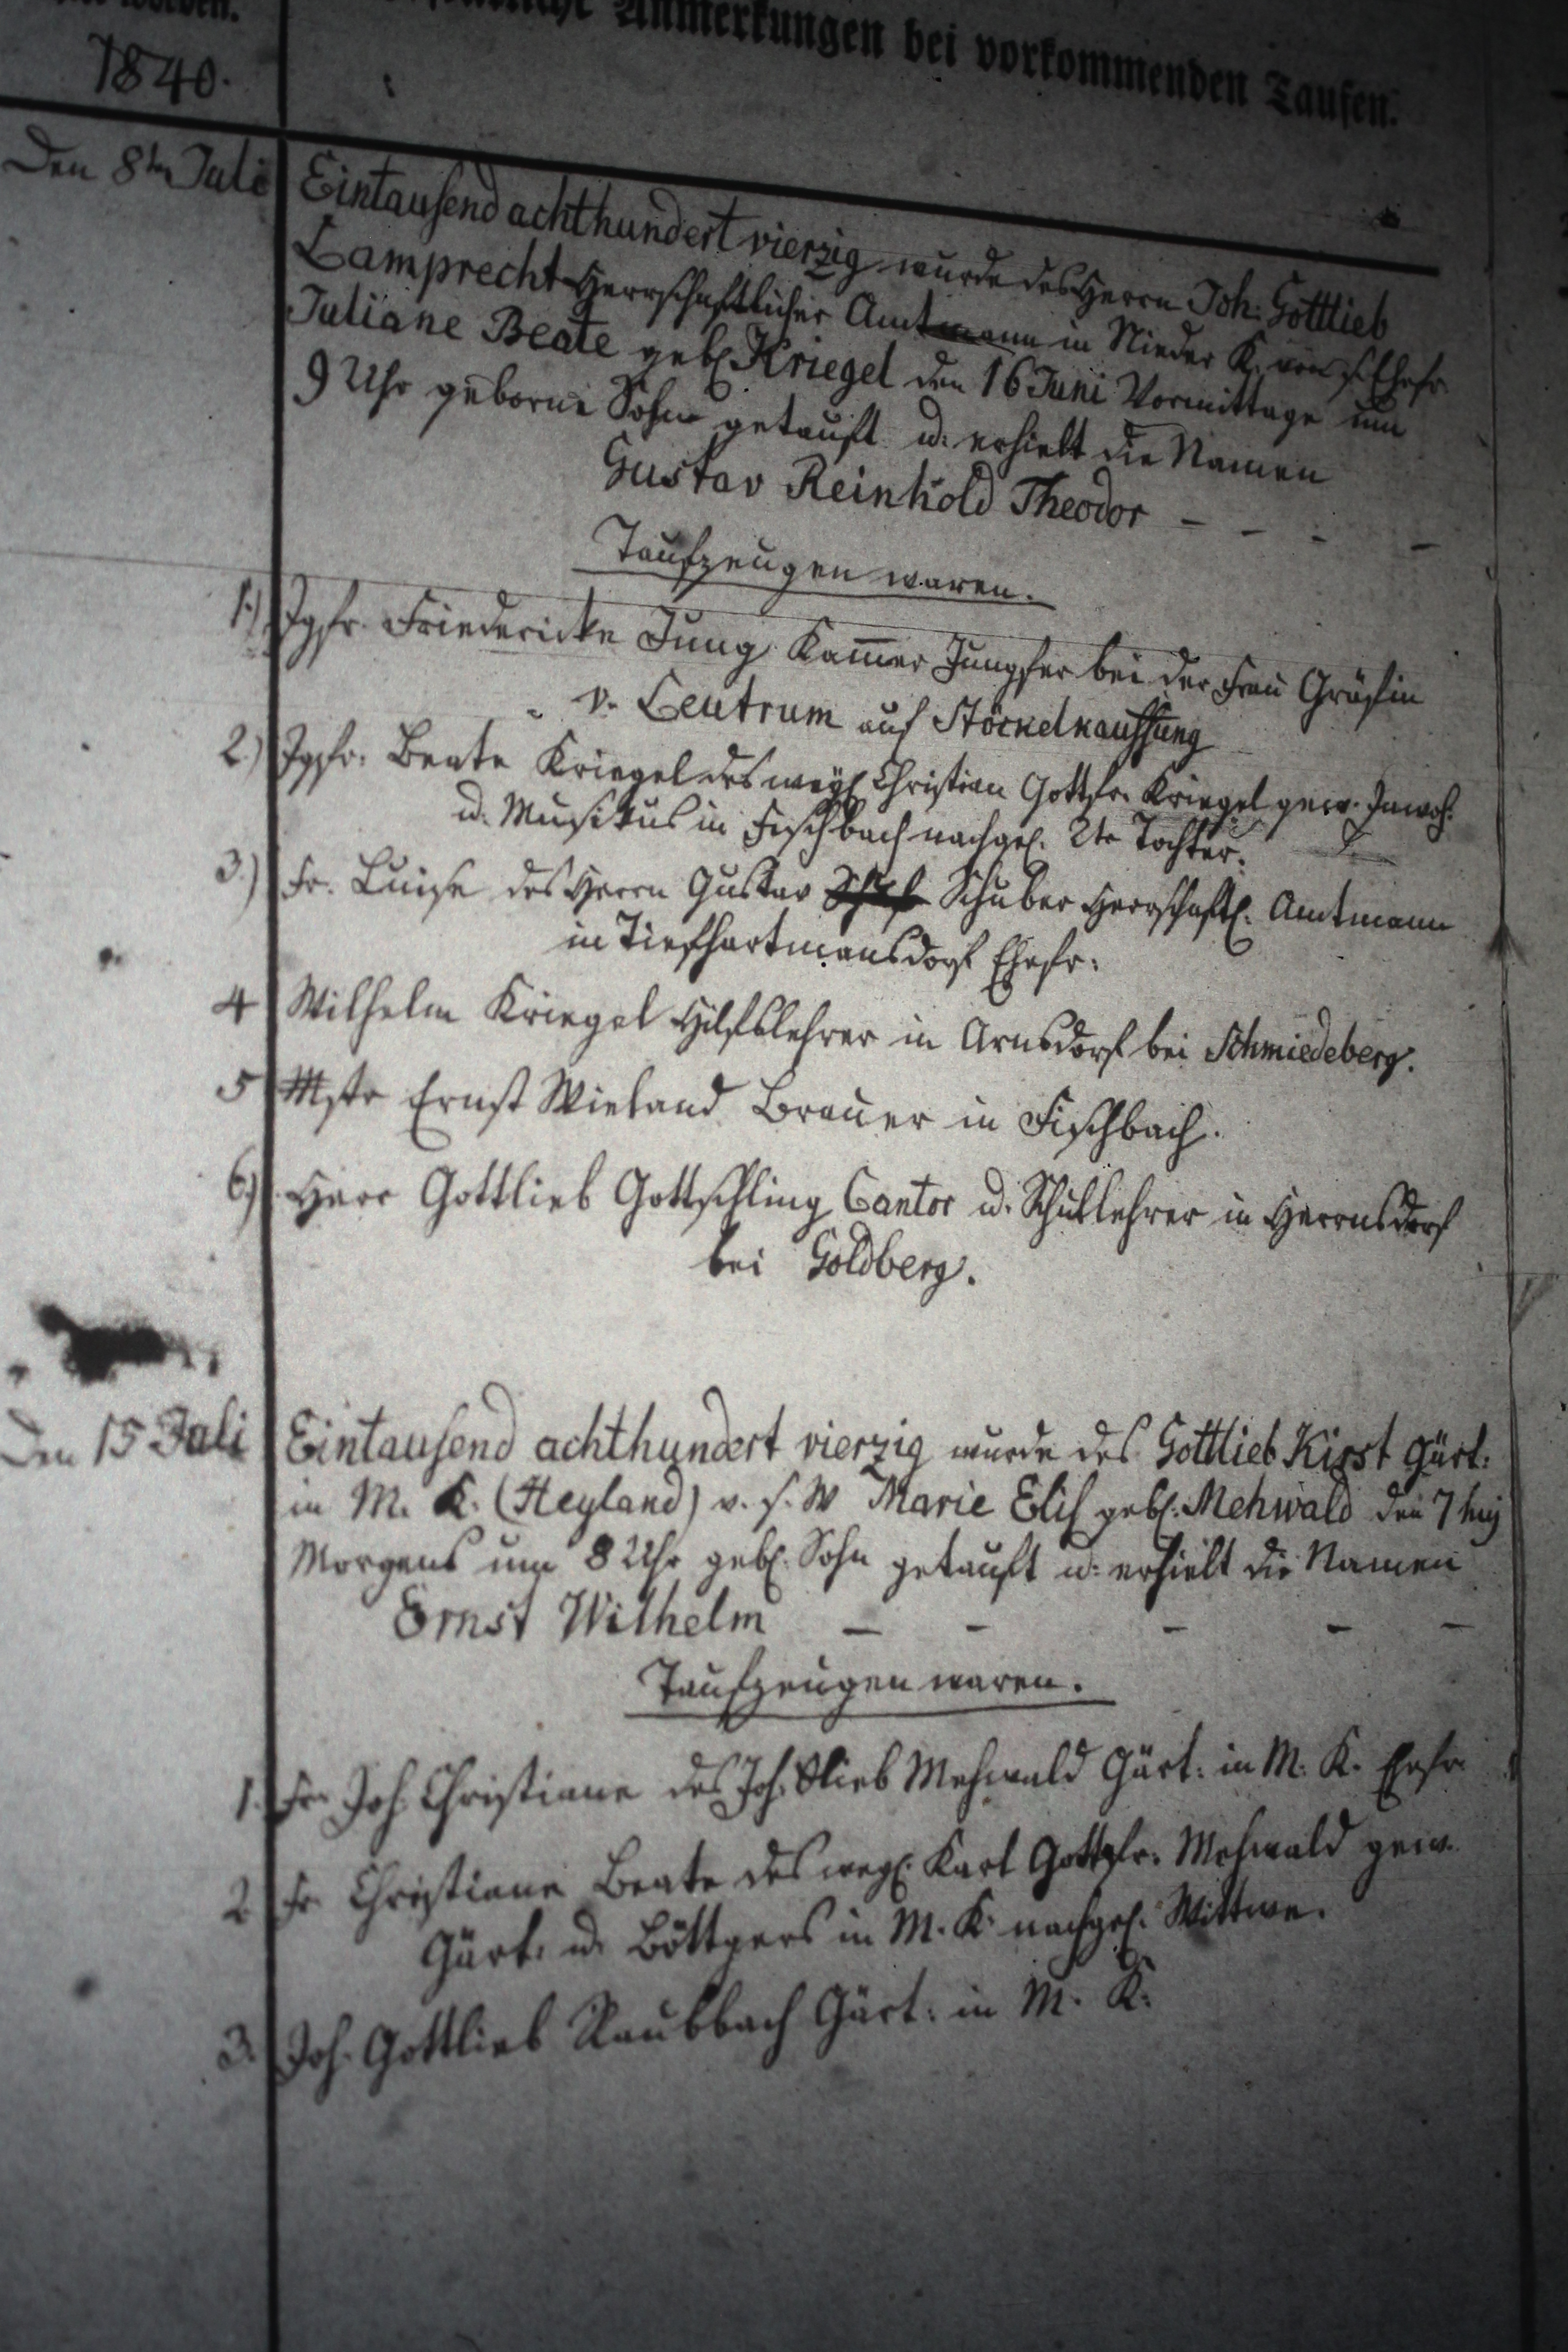 worden.
Anmerkungen bei vorkommenden Taufen.
1840.
Den 8ten Juli
Eintausend achthundert vierzig wurde des Herrn Joh: Gottlieb
Lamprecht Herrschaftlicher Amtmann in Nieder K. von s. Ehefr.
Juliane Beate geb. Kriegel den 16 Juni Vormittags um
9 Uhr geborne Sohn getauft u: erhielt die Namen
Gustav Reinhold Theodor – – – –
Taufzeugen waren.
1.) Jgfr. Friedericke Jung Kam̅er Jungfer bei der Frau Gräfin
v. Centrum auf Stöckelkauffung
2.) Jgfr. Beate Kriegel des weyl. Christian Gottfr. Kriegel gew. Inwoh.
u. Musikus in Fischbach nachgel. 2te Tochter.
3.) Fr. Luise des Herrn Gustav Schuber Herrschaftl. Amtmann
in Tiefhartmansdorf Ehefr:
4 Wilhelm Kriegel Hilfslehrer in Arnsdorf bei Schmiedeberg.
5 Mstr Ernst Wieland Brauer in Fischbach.
6.) Herr Gottlieb Gottschling Cantor u. Schullehrer in Hermsdorf
bei Goldberg.
Den 15 Juli
Eintausend achthundert vierzig wurde des Gottlieb Kirst Gärt:
in M. K. (Heyland) v. s. W Marie Elis geb. Mehwald den 7 huj
Morgens um 8 Uhr geb. Sohn getauft u: erhielt die Namen
Ernst Wilhelm – – – – –
Taufzeugen waren.
1. Fr. Joh. Christiane des Joh. Glieb Mehwald Gärt: in M. K. Ehefr.
2 Fr Christiane Beate des weyl. Karl Gottfr. Mehwald gew.
Gärt. u. Böttgers in M. K. nachgel. Wittwe.
3. Joh. Gottlieb Raubbach Gärt: in M. K.